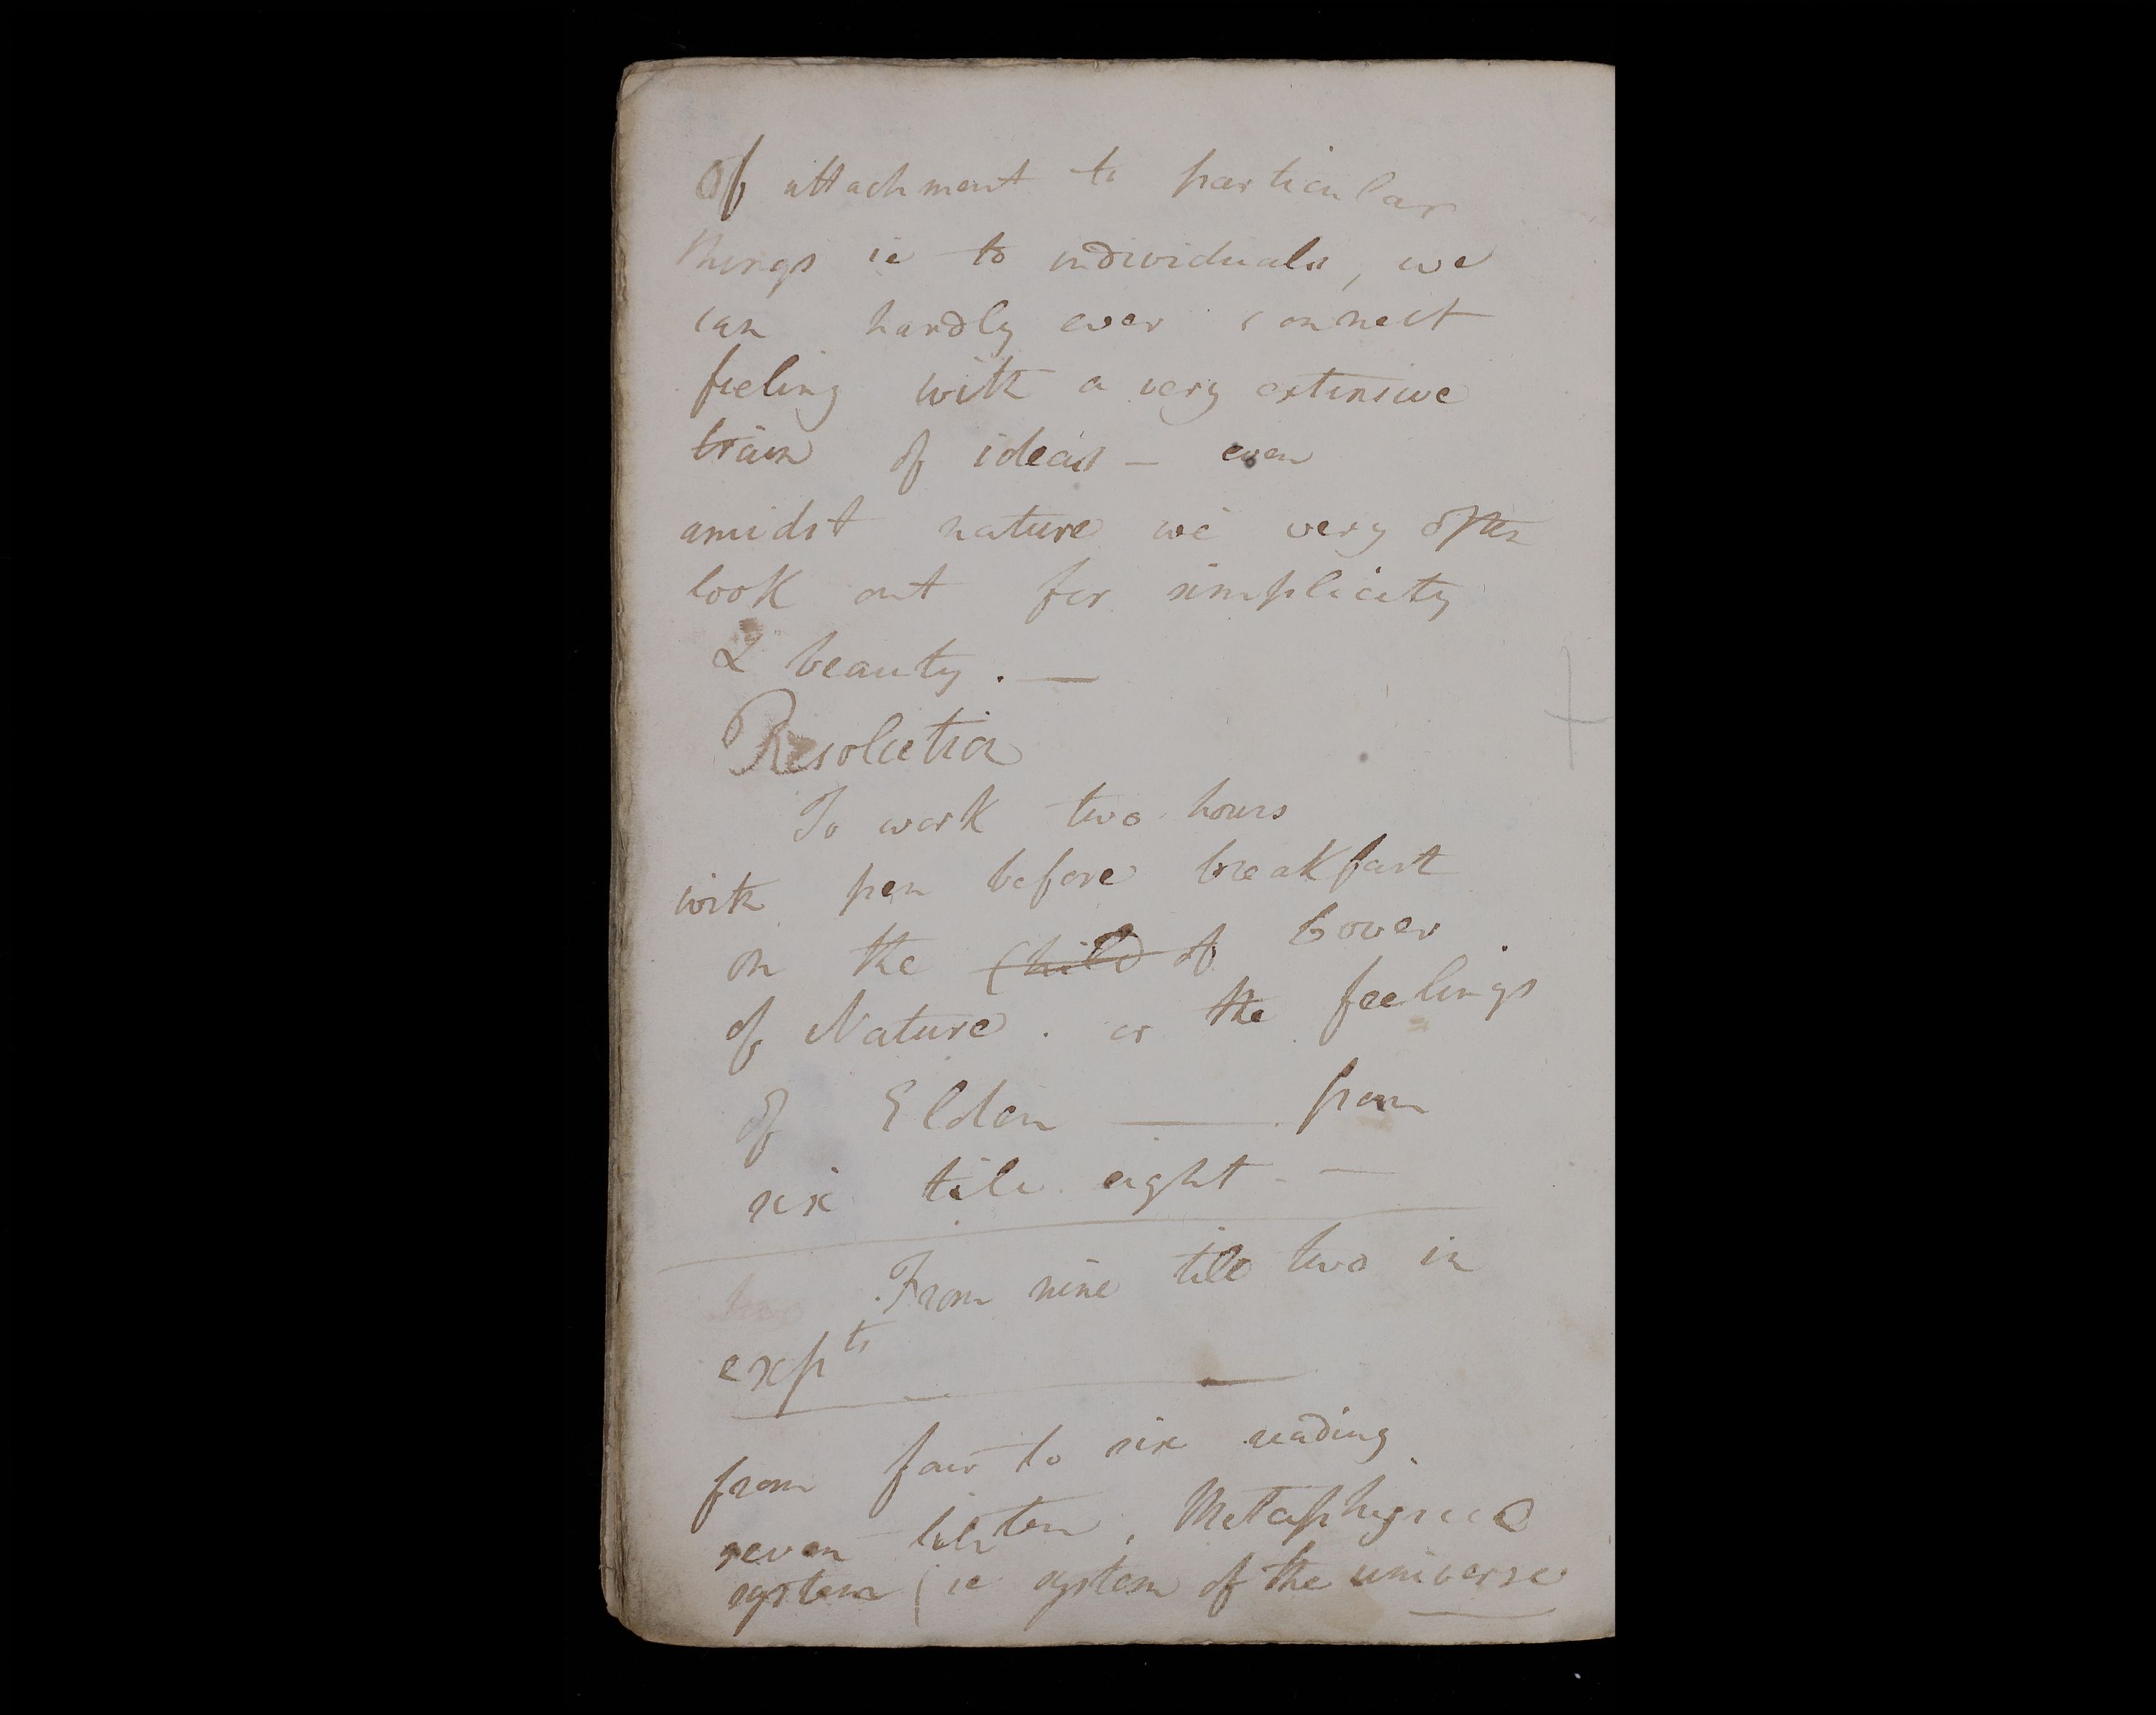 Of attachment to particular
things ie to individuals, we
can hardly ever connect
feeling with a very extensive
train of ideas – even
amidst nature we very often
look out for simplicity
& beauty. —
Resolution
To work two hours
with pen before breakfast
on the Child of Lover
of Nature. or the feelings
of Eldon — from
six till eight —
two From nine till two in
expts
from four to six reading
seven till ten, Metaphysical
system (ie system of the universe